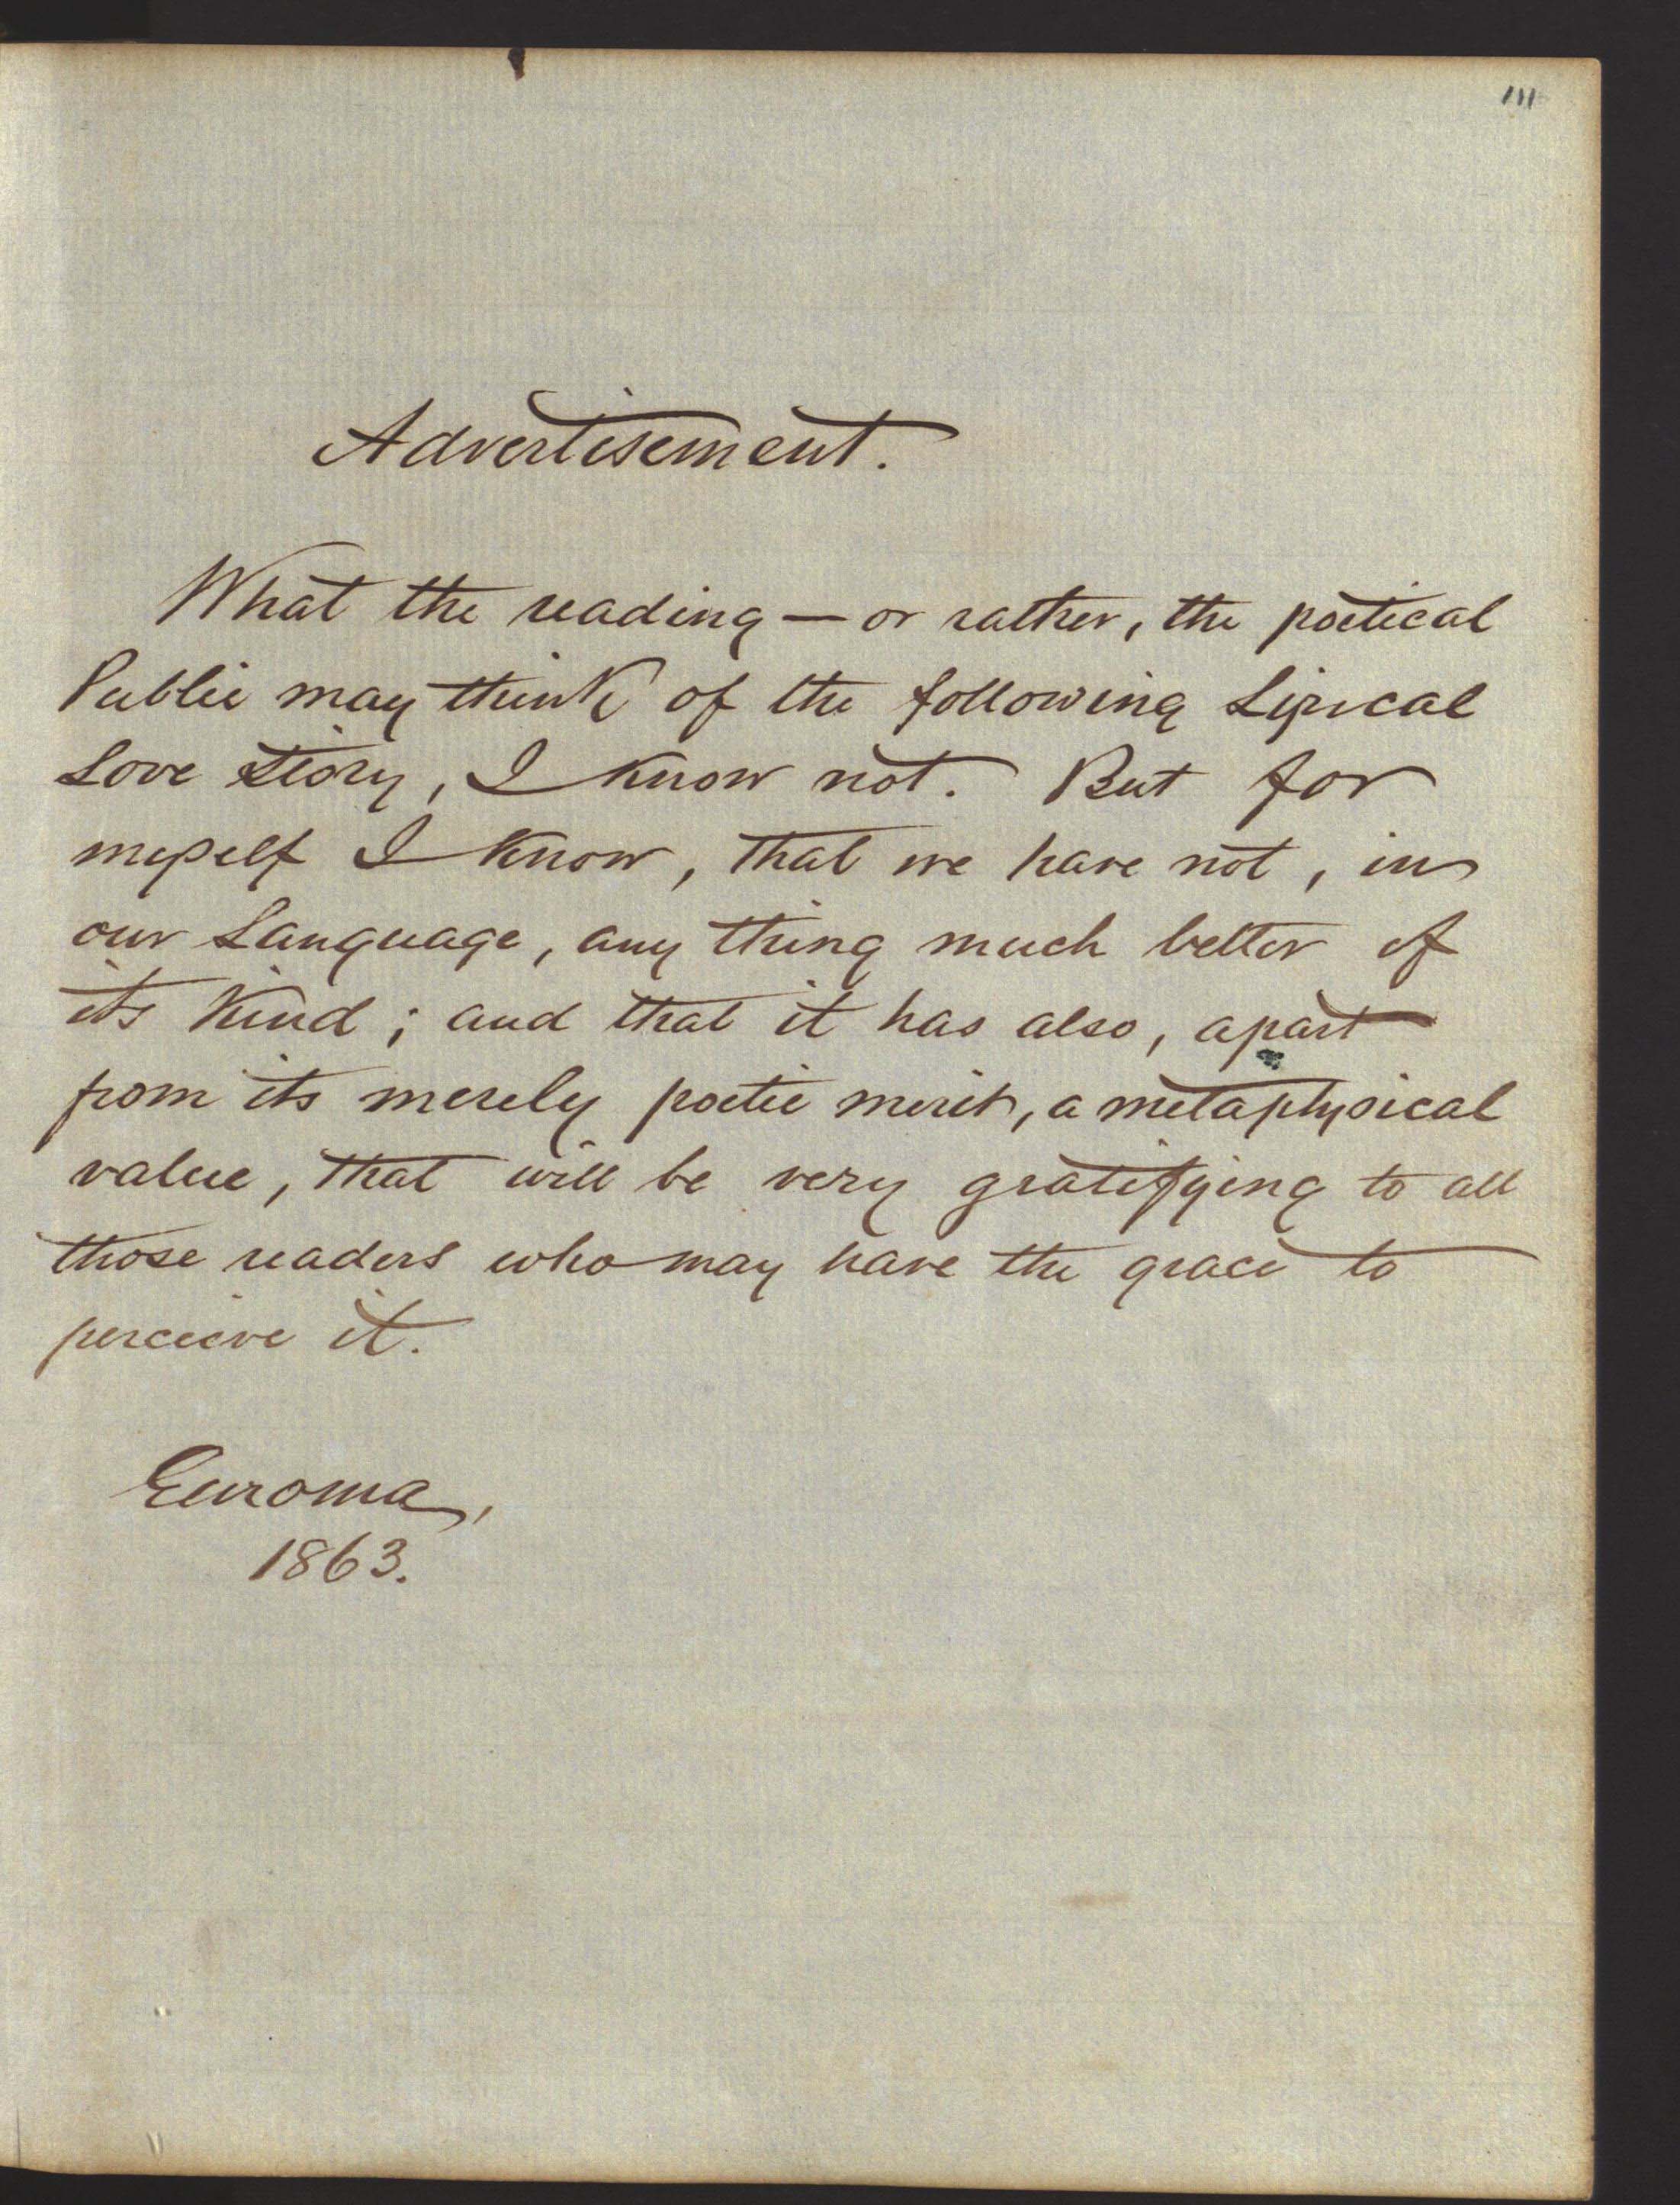 111
Advertisement.
What the reading — or rather, the poetical
Public may think of the following Lyrical
Love Story, I know not. But for
myself I know, that we have not, in
our Language, any thing much better of
its kind; and that it has also, apart
from its merely poetic merit, a metaphysical
value, that will be very gratifying to all
those readers who may have the grace to
perceive it.
Euroma,
1863.